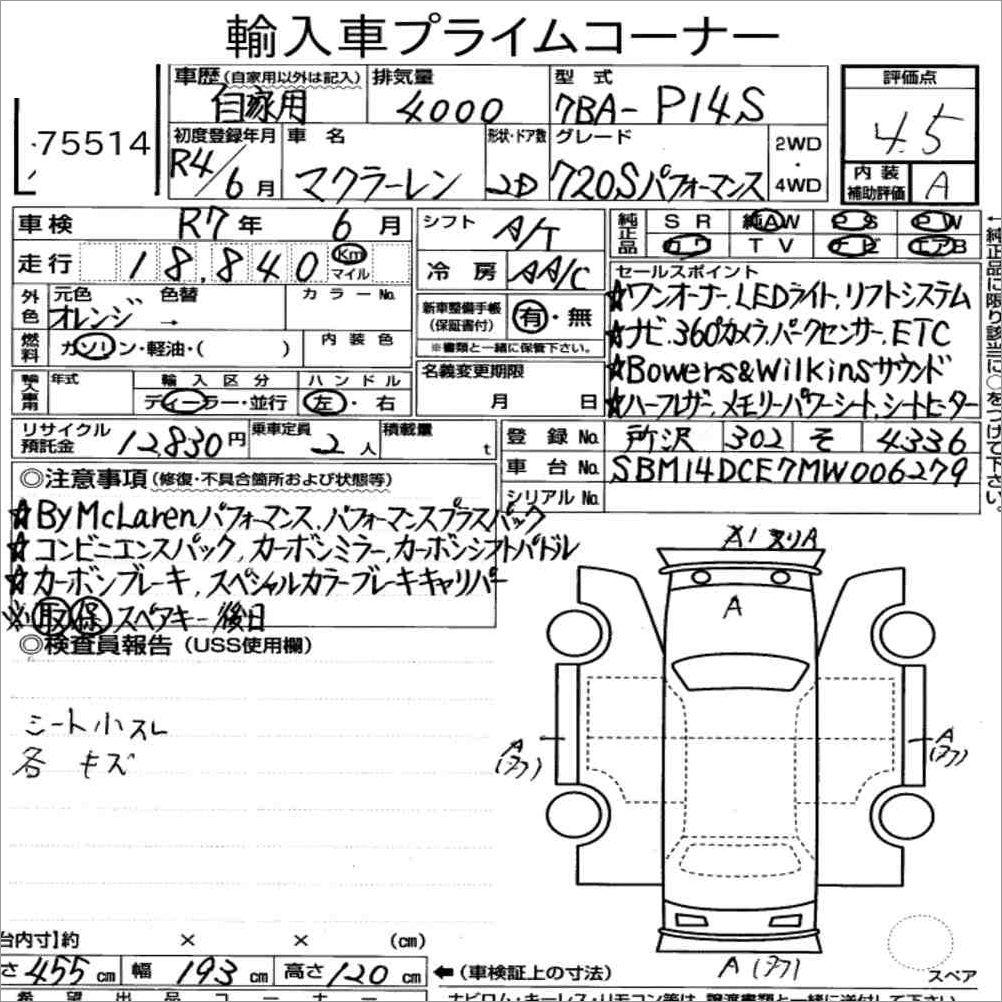 輸入車プライムコーナー
75514
車歴(自家用以外は記入) 排気量 型式 評価点
自家用 4000 7BA- P14S 4.5
初度登録年月 車名 形状・ドア数 グレード 2WD・4WD 内装補助評価 A
R4/6月 マクラーレン 2D 720Sパフォーマンス
車検 R7年 6月 シフト A/T
走行 18,840 Km マイル 冷房 AA/C
純正品 SR 純AW PS PW
カワ TV ナビ エアB
外色 元色 色替 カラーNo.
オレンジ →
新車整備手帳(保証書付) 有・無
※書類と一緒に保管下さい。
燃料 ガソリン・軽油・( ) 内装色
輸入車用 年式 輸入区分 ハンドル
ディーラー・並行 左・右
名義変更期限
月 日
セールスポイント
☆ワンオーナー、LEDライト、リフトシステム
☆ナビ、360°カメラ、パークセンサー、ETC
☆Bowers&Wilkinsサウンド
☆ハーフレザー、メモリーパワーシート、シートヒーター
←純正品に限り該当に○をつけて下さい。
リサイクル預託金 12,830円 乗車定員 2人 積載量 t
登録No. 所沢 302 そ 4336
車台No. SBM14DCE7MW006279
シリアルNo.
◎注意事項(修復・不具合箇所および状態等)
☆By McLarenパフォーマンス、パフォーマンスプラスパック
☆コンビニエンスパック、カーボンミラー、カーボンシフトパドル
☆カーボンブレーキ、スペシャルカラーブレーキキャリパー
※取保スペアキー/後日
◎検査員報告(USS使用欄)
シート小スレ
各 キズ
X1 ヌリA
A
A
(フフ)
A
(フフ)
A(フフ)
スペア
台内寸】約 × × (cm)
さ 455 cm 幅 193 cm 高さ 120 cm ←(車検証上の寸法)
希望出品コーナー